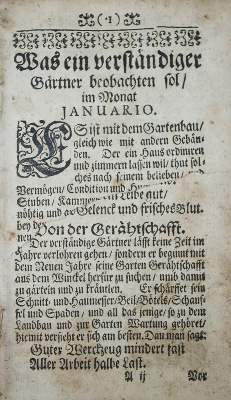 (1)
Was ein verständiger
Gärtner beobachten sol/
im Monat
JANUARIO.
ES ist mit dem Gartenbau/
gleich wie mit andern Gebäu-
den. Der ein Haus ordiniren
und zimmern lassen wil/ thut sol-
ches nach seinem belieben/ und
Vermögen/ Condition und
Stuben/ Kammern Leibe gut/
nöhtig und Gelenck und frisches Blut.
bey de
nen. Von der Gerähtschafft.
Der verständige Gärtner läst keine Zeit im
Jahre verlohren gehen/ sondern er beginnt mit
dem Neuen Jahre seine Garten Gerähtschafft
aus dem Winckel herfür zu suchen/ und damit
zu gärteln und zu kräutlen. Er schärffet sein
Schnitt- und Haumesser/ Beil/ Bötels/ Schauf-
fel und Spaden/ und all das jenige/ so zu dem
Landbau und zur Garten Wartung gehöret/
hiemit versieht er sich am besten. Dan man sagt:
Guter Werckzeug mindert fast
Aller Arbeit halbe Last.
A ij Vor